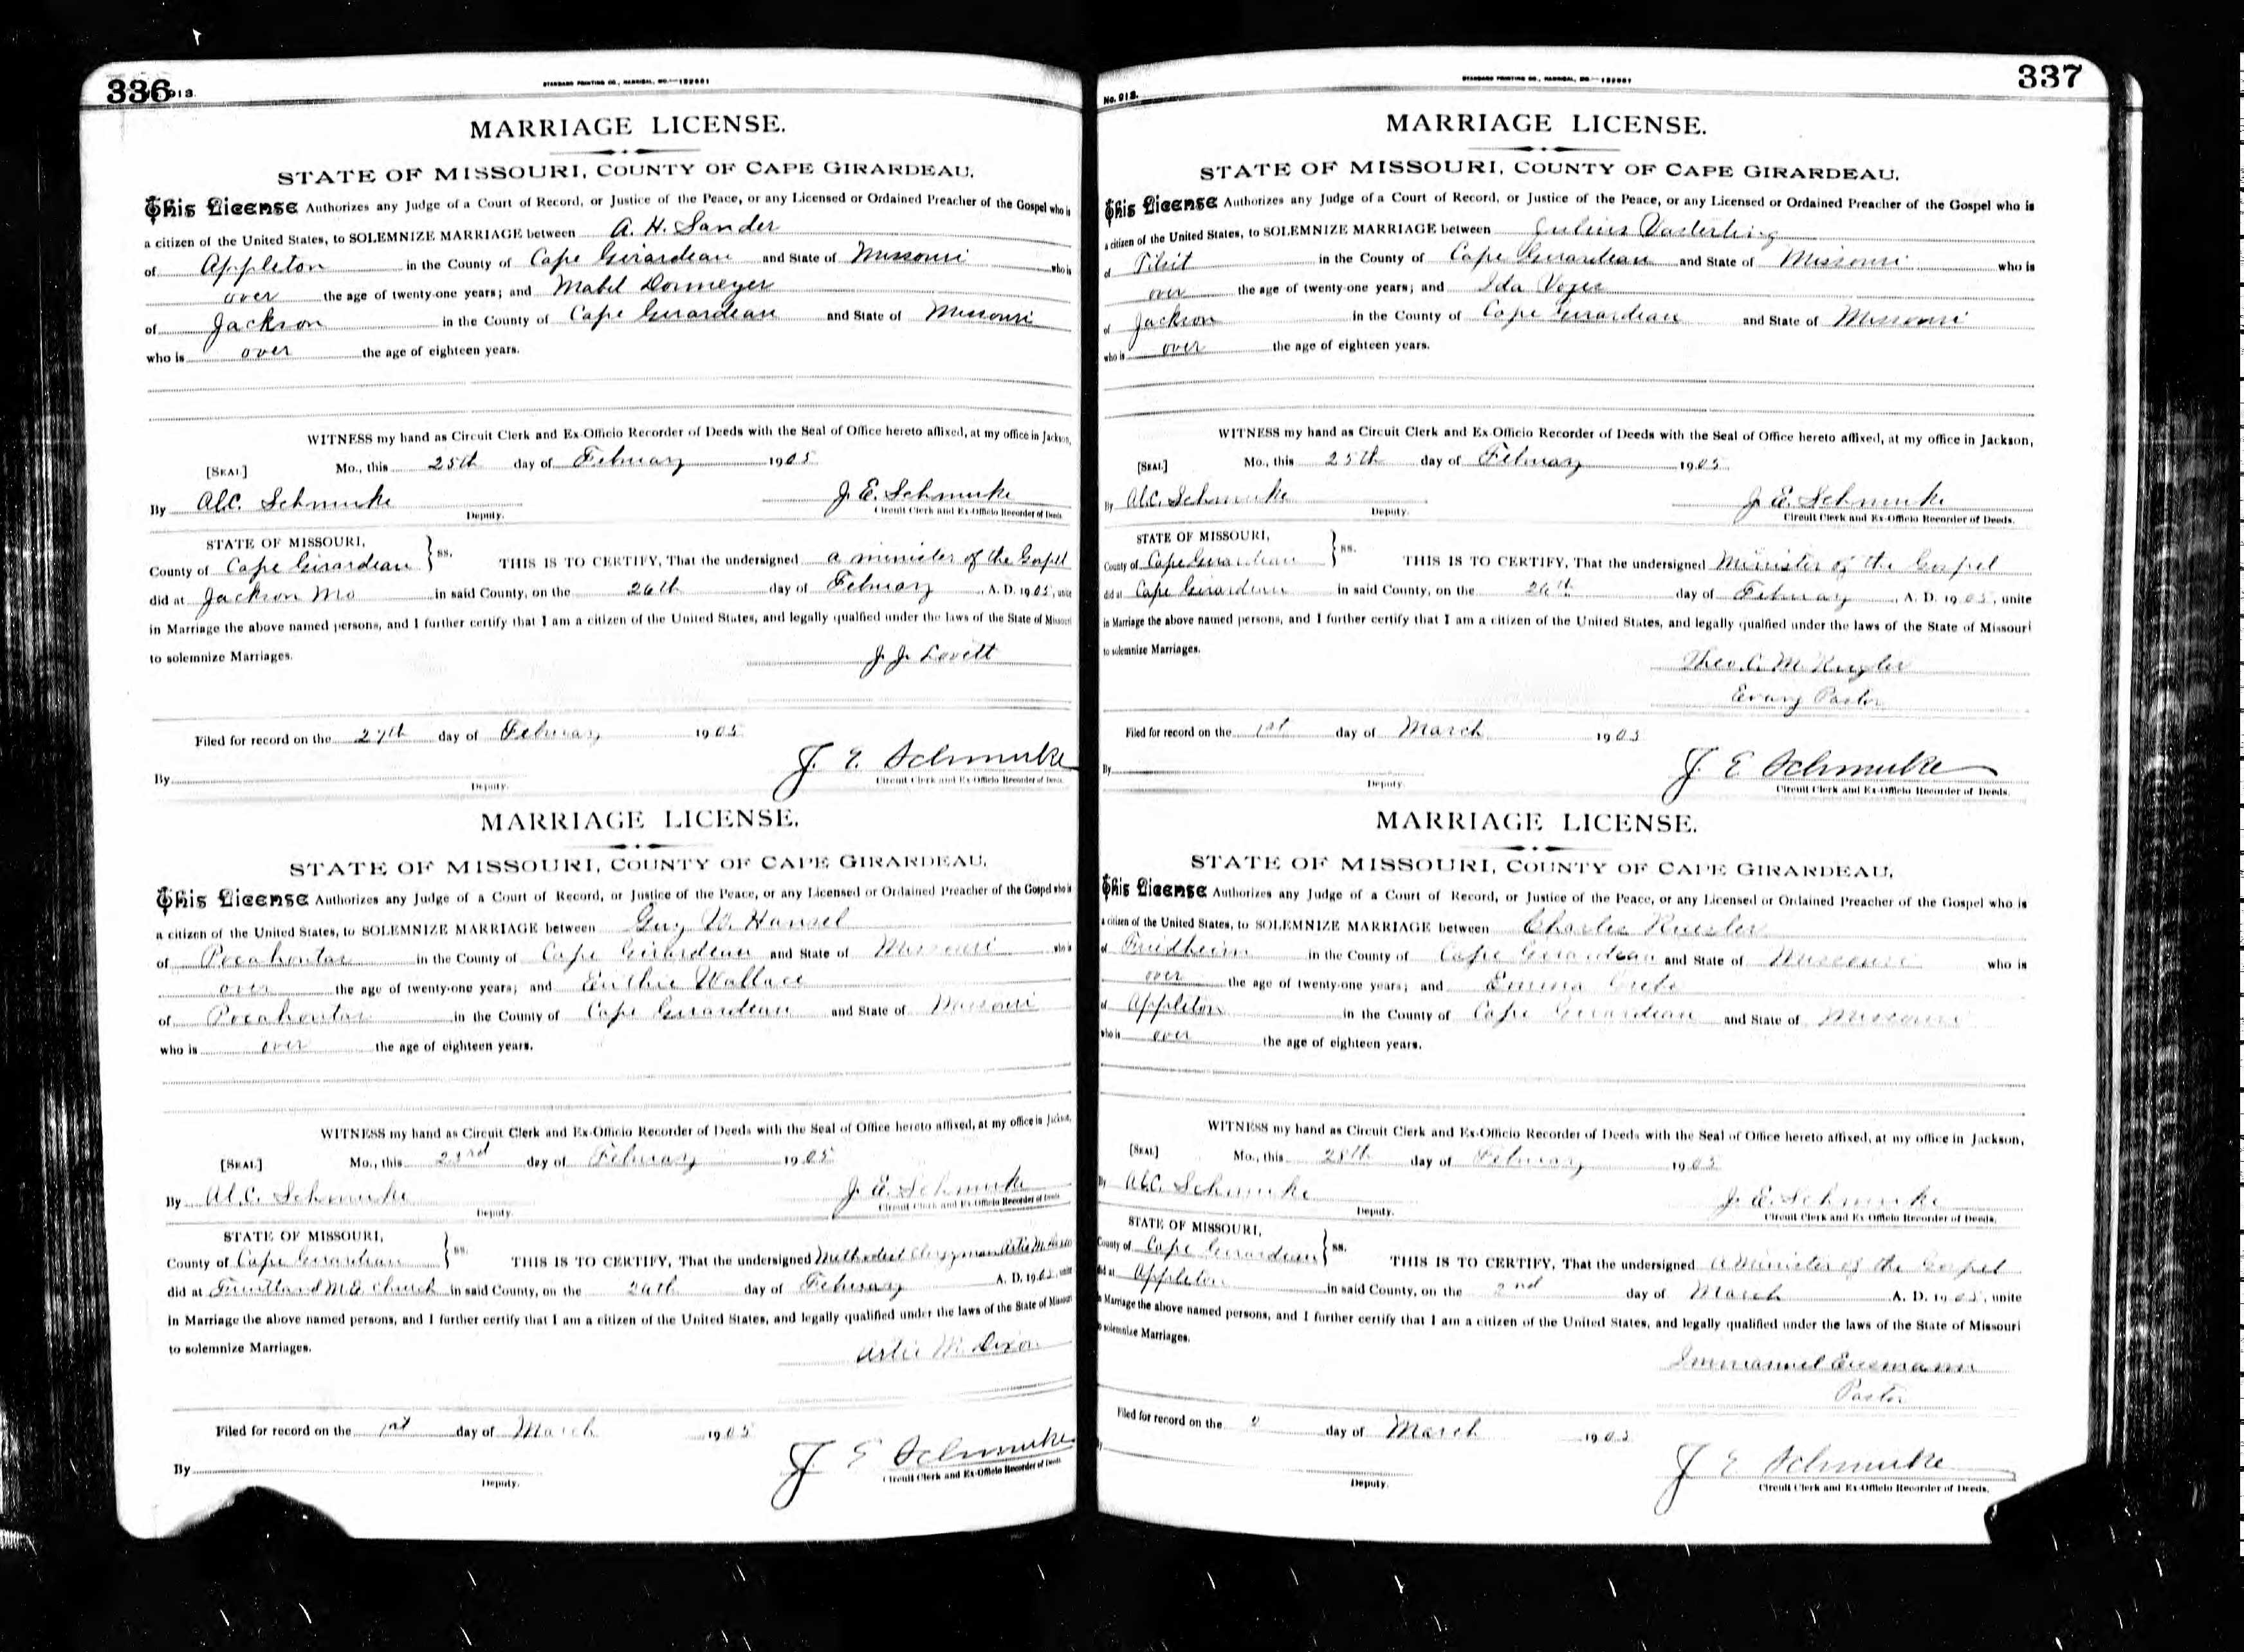 336
No. 913.
STANDARD PRINTING CO., HANNIBAL, MO.
MARRIAGE LICENSE.
STATE OF MISSOURI, COUNTY OF CAPE GIRARDEAU.
This License Authorizes any Judge of a Court of Record, or Justice of the Peace, or any Licensed or Ordained Preacher of the Gospel who is
a citizen of the United States, to SOLEMNIZE MARRIAGE between A. H. Sander
of Appleton in the County of Cape Girardeau and State of Missouri who is
over the age of twenty-one years; and Mabel Dormeyer
of Jackson in the County of Cape Girardeau and State of Missouri
who is over the age of eighteen years.
WITNESS my hand as Circuit Clerk and Ex-Officio Recorder of Deeds with the Seal of Office hereto affixed, at my office in Jackson,
[SEAL] Mo., this 25th day of February 1905
By Al.C. Schmuke Deputy. J. E. Schmuke
Circuit Clerk and Ex-Officio Recorder of Deeds
STATE OF MISSOURI,
County of Cape Girardeau } ss. THIS IS TO CERTIFY, That the undersigned a minister of the Gospel
did at Jackson Mo in said County, on the 26th day of February A. D. 1905, unite
in Marriage the above named persons, and I further certify that I am a citizen of the United States, and legally qualified under the laws of the State of Missouri
to solemnize Marriages.
J. J. Lovett
Filed for record on the 27th day of February 1905
J. E. Schmuke
By Deputy. Circuit Clerk and Ex-Officio Recorder of Deeds.
MARRIAGE LICENSE.
STATE OF MISSOURI, COUNTY OF CAPE GIRARDEAU.
This License Authorizes any Judge of a Court of Record, or Justice of the Peace, or any Licensed or Ordained Preacher of the Gospel who is
a citizen of the United States, to SOLEMNIZE MARRIAGE between Guy W. Hansel
of Pocahontas in the County of Cape Girardeau and State of Missouri who is
over the age of twenty-one years; and Wallace
of Pocahontas in the County of Cape Girardeau and State of Missouri
who is over the age of eighteen years.
WITNESS my hand as Circuit Clerk and Ex-Officio Recorder of Deeds with the Seal of Office hereto affixed, at my office in Jackson,
[SEAL] Mo., this 23rd day of February 1905
By Al.C. Schmuke Deputy. J. E. Schmuke
Circuit Clerk and Ex-Officio Recorder of Deeds
STATE OF MISSOURI,
County of Cape Girardeau } ss. THIS IS TO CERTIFY, That the undersigned Methodist Clergyman Artie M.
did at Fruitland M E Church in said County, on the 26th day of February A. D. 1905, unite
in Marriage the above named persons, and I further certify that I am a citizen of the United States, and legally qualified under the laws of the State of Missouri
to solemnize Marriages.
Artie M. Dixon
Filed for record on the 1st day of March 1905
J E Schmuke
By Deputy. Circuit Clerk and Ex-Officio Recorder of Deeds
337
No. 913.
STANDARD PRINTING CO., HANNIBAL, MO.
MARRIAGE LICENSE.
STATE OF MISSOURI, COUNTY OF CAPE GIRARDEAU.
This License Authorizes any Judge of a Court of Record, or Justice of the Peace, or any Licensed or Ordained Preacher of the Gospel who is
a citizen of the United States, to SOLEMNIZE MARRIAGE between Julius Vasterling
of Tilsit in the County of Cape Girardeau and State of Missouri who is
over the age of twenty-one years; and Ida
of Jackson in the County of Cape Girardeau and State of Missouri
who is over the age of eighteen years.
WITNESS my hand as Circuit Clerk and Ex-Officio Recorder of Deeds with the Seal of Office hereto affixed, at my office in Jackson,
[SEAL] Mo., this 25th day of February 1905
By Al.C. Schmuke Deputy. J. E. Schmuke
Circuit Clerk and Ex-Officio Recorder of Deeds.
STATE OF MISSOURI,
County of Cape Girardeau } ss. THIS IS TO CERTIFY, That the undersigned Minister of the Gospel
did at Cape Girardeau in said County, on the 26th day of February A. D. 1905, unite
in Marriage the above named persons, and I further certify that I am a citizen of the United States, and legally qualified under the laws of the State of Missouri
to solemnize Marriages.
Theo. C. M.
Evang Pastor
Filed for record on the 1st day of March 1905
J E Schmuke
By Deputy. Circuit Clerk and Ex-Officio Recorder of Deeds.
MARRIAGE LICENSE.
STATE OF MISSOURI, COUNTY OF CAPE GIRARDEAU.
This License Authorizes any Judge of a Court of Record, or Justice of the Peace, or any Licensed or Ordained Preacher of the Gospel who is
a citizen of the United States, to SOLEMNIZE MARRIAGE between Charlie
of Friedheim in the County of Cape Girardeau and State of Missouri who is
over the age of twenty-one years; and Emma
of Appleton in the County of Cape Girardeau and State of Missouri
who is over the age of eighteen years.
WITNESS my hand as Circuit Clerk and Ex-Officio Recorder of Deeds with the Seal of Office hereto affixed, at my office in Jackson,
[SEAL] Mo., this 28th day of February 1905
By Al.C. Schmuke Deputy. J. E. Schmuke
Circuit Clerk and Ex-Officio Recorder of Deeds.
STATE OF MISSOURI,
County of Cape Girardeau } ss. THIS IS TO CERTIFY, That the undersigned A Minister of the Gospel
did at Appleton in said County, on the 2nd day of March A. D. 1905, unite
in Marriage the above named persons, and I further certify that I am a citizen of the United States, and legally qualified under the laws of the State of Missouri
to solemnize Marriages.
Immanuel
Pastor
Filed for record on the day of March 1905
J E Schmuke
Deputy. Circuit Clerk and Ex-Officio Recorder of Deeds.